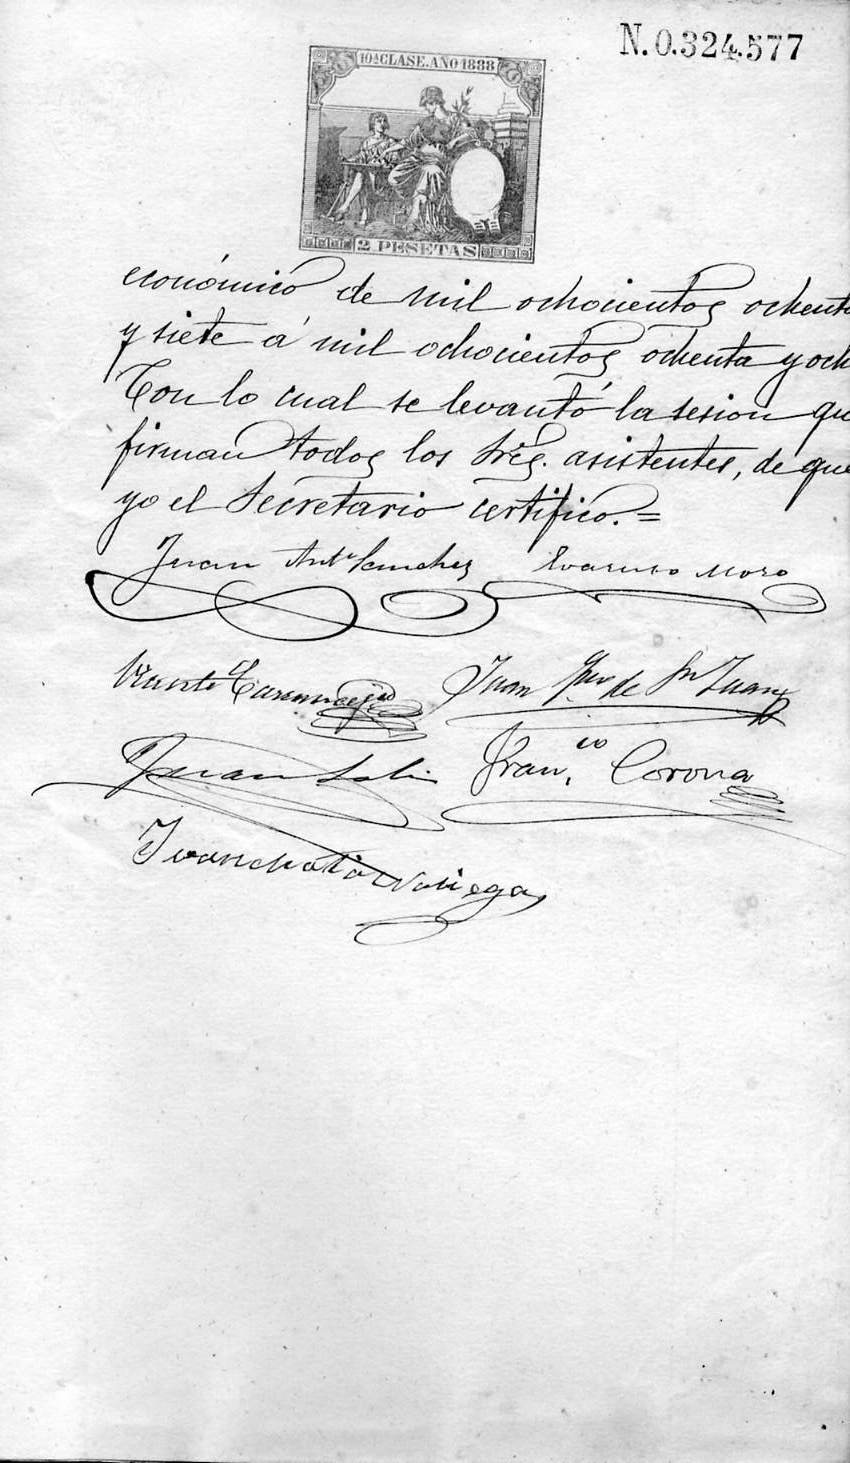 N. 0.324.577
10ª CLASE. AÑO 1888
2 PESETAS
económico de mil ochocientos ochenta
y siete á mil ochocientos ochenta y och
Con lo cual se levantó la sesion que
firman todos los Sres. asistentes, de que
yo el Secretario certifico. =
Juan Antº Sanchez Evaristo Moro
Vicente Juan de Sn Juan
Juan Franco Corona
Noriega